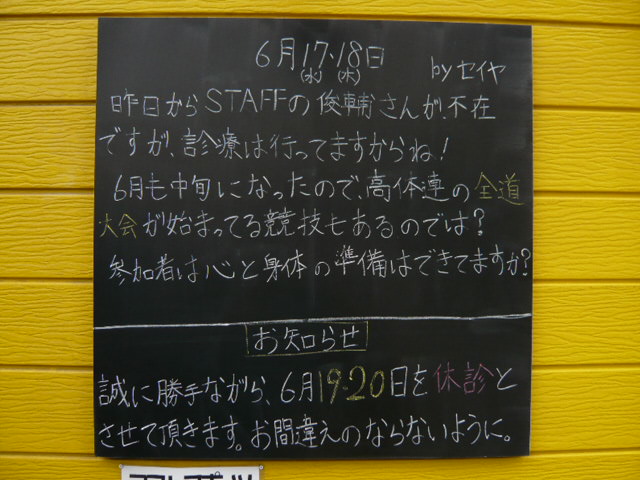 6月17・18日
(水) (木)
by セイヤ
昨日からSTAFFの俊輔さんが、不在
ですが、診療は行ってますからね！
6月も中旬になったので、高体連の全道
大会が始まってる競技もあるのでは？
参加者は心と身体の準備はできてますか？
お知らせ
誠に勝手ながら、6月19・20日を休診と
させて頂きます。お間違えのならないように。